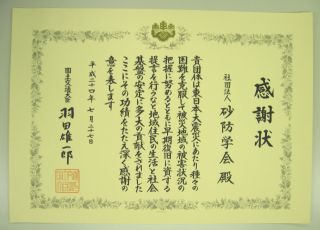 感謝状
社団法人 砂防学会 殿
貴団体は東日本大震災にあたり種々の
困難を克服して被災地域の被害状況の
把握に努めるとともに早期復旧に資する
提言を行うなど地域住民の生活と社会
基盤の安定に多大の貢献をされました
ここにその功績をたたえ深く感謝の
意を表します
平成二十四年七月二十七日
国土交通大臣 羽田雄一郎